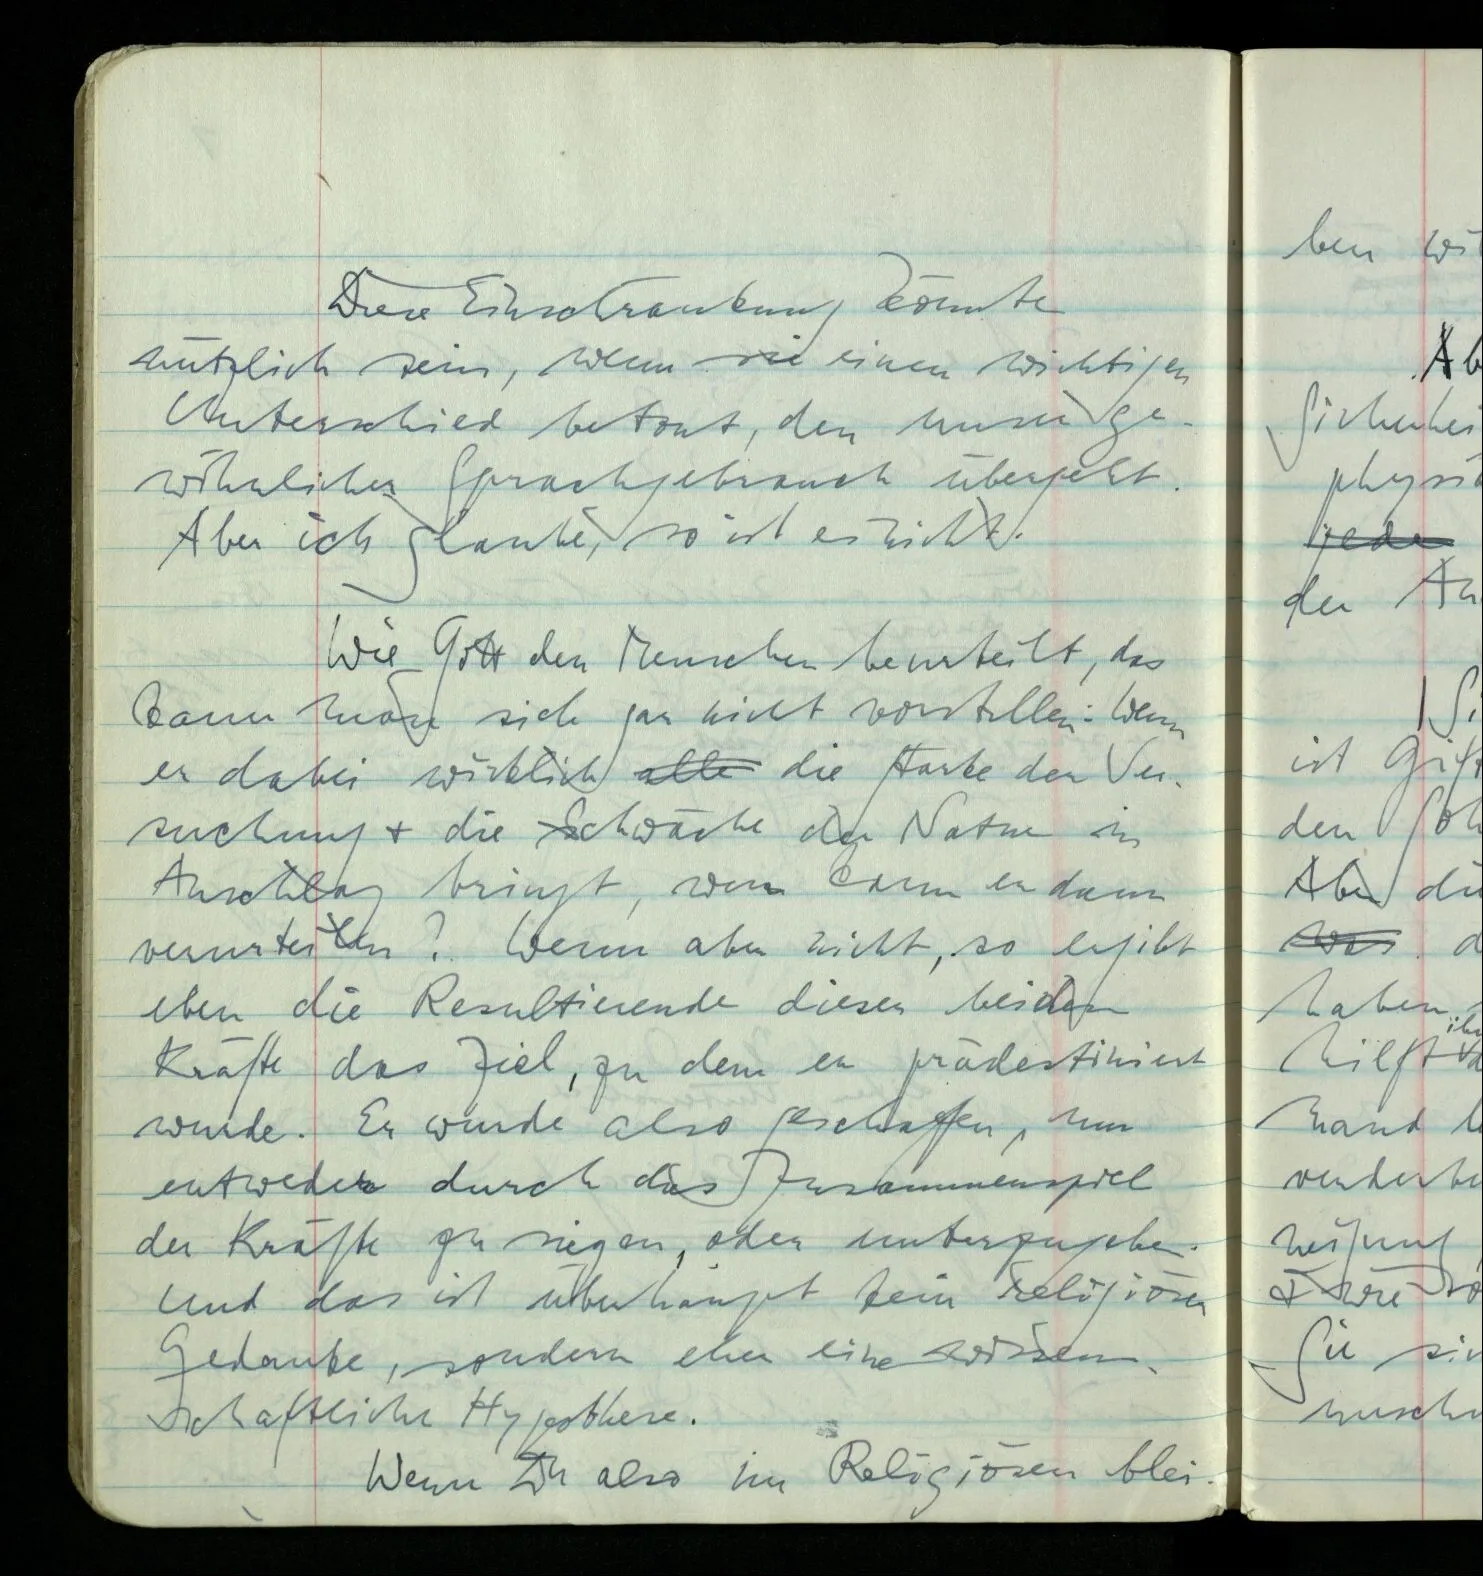 Diese Einschränkung könnte
nützlich sein, wenn sie einen wichtigen
Unterschied betont, den unser ge-
wöhnlicher Sprachgebrauch übergeht.
Aber ich glaube, so ist es nicht.
Wie Gott den Menschen beurteilt, das
kann man sich gar nicht vorstellen. Wenn
er dabei wirklich alle die Stärke der Ver-
suchung + die Schwäche der Natur in
Anschlag bringt, wen kann er dann
verurteilen? Wenn aber nicht, so ergibt
eben die Resultierende dieser beiden
Kräfte das Ziel, zu dem er prädestiniert
wurde. Er wurde also geschaffen, um
entweder durch das Zusammenspiel
der Kräfte zu siegen, oder unterzugehen.
Und das ist überhaupt kein religiöser
Gedanke, sondern eher eine wissen-
schaftliche Hypothese.
Wenn Du also im Religiösen blei-
ben
jede
der
ist
den
Aber
was
haben
hilft